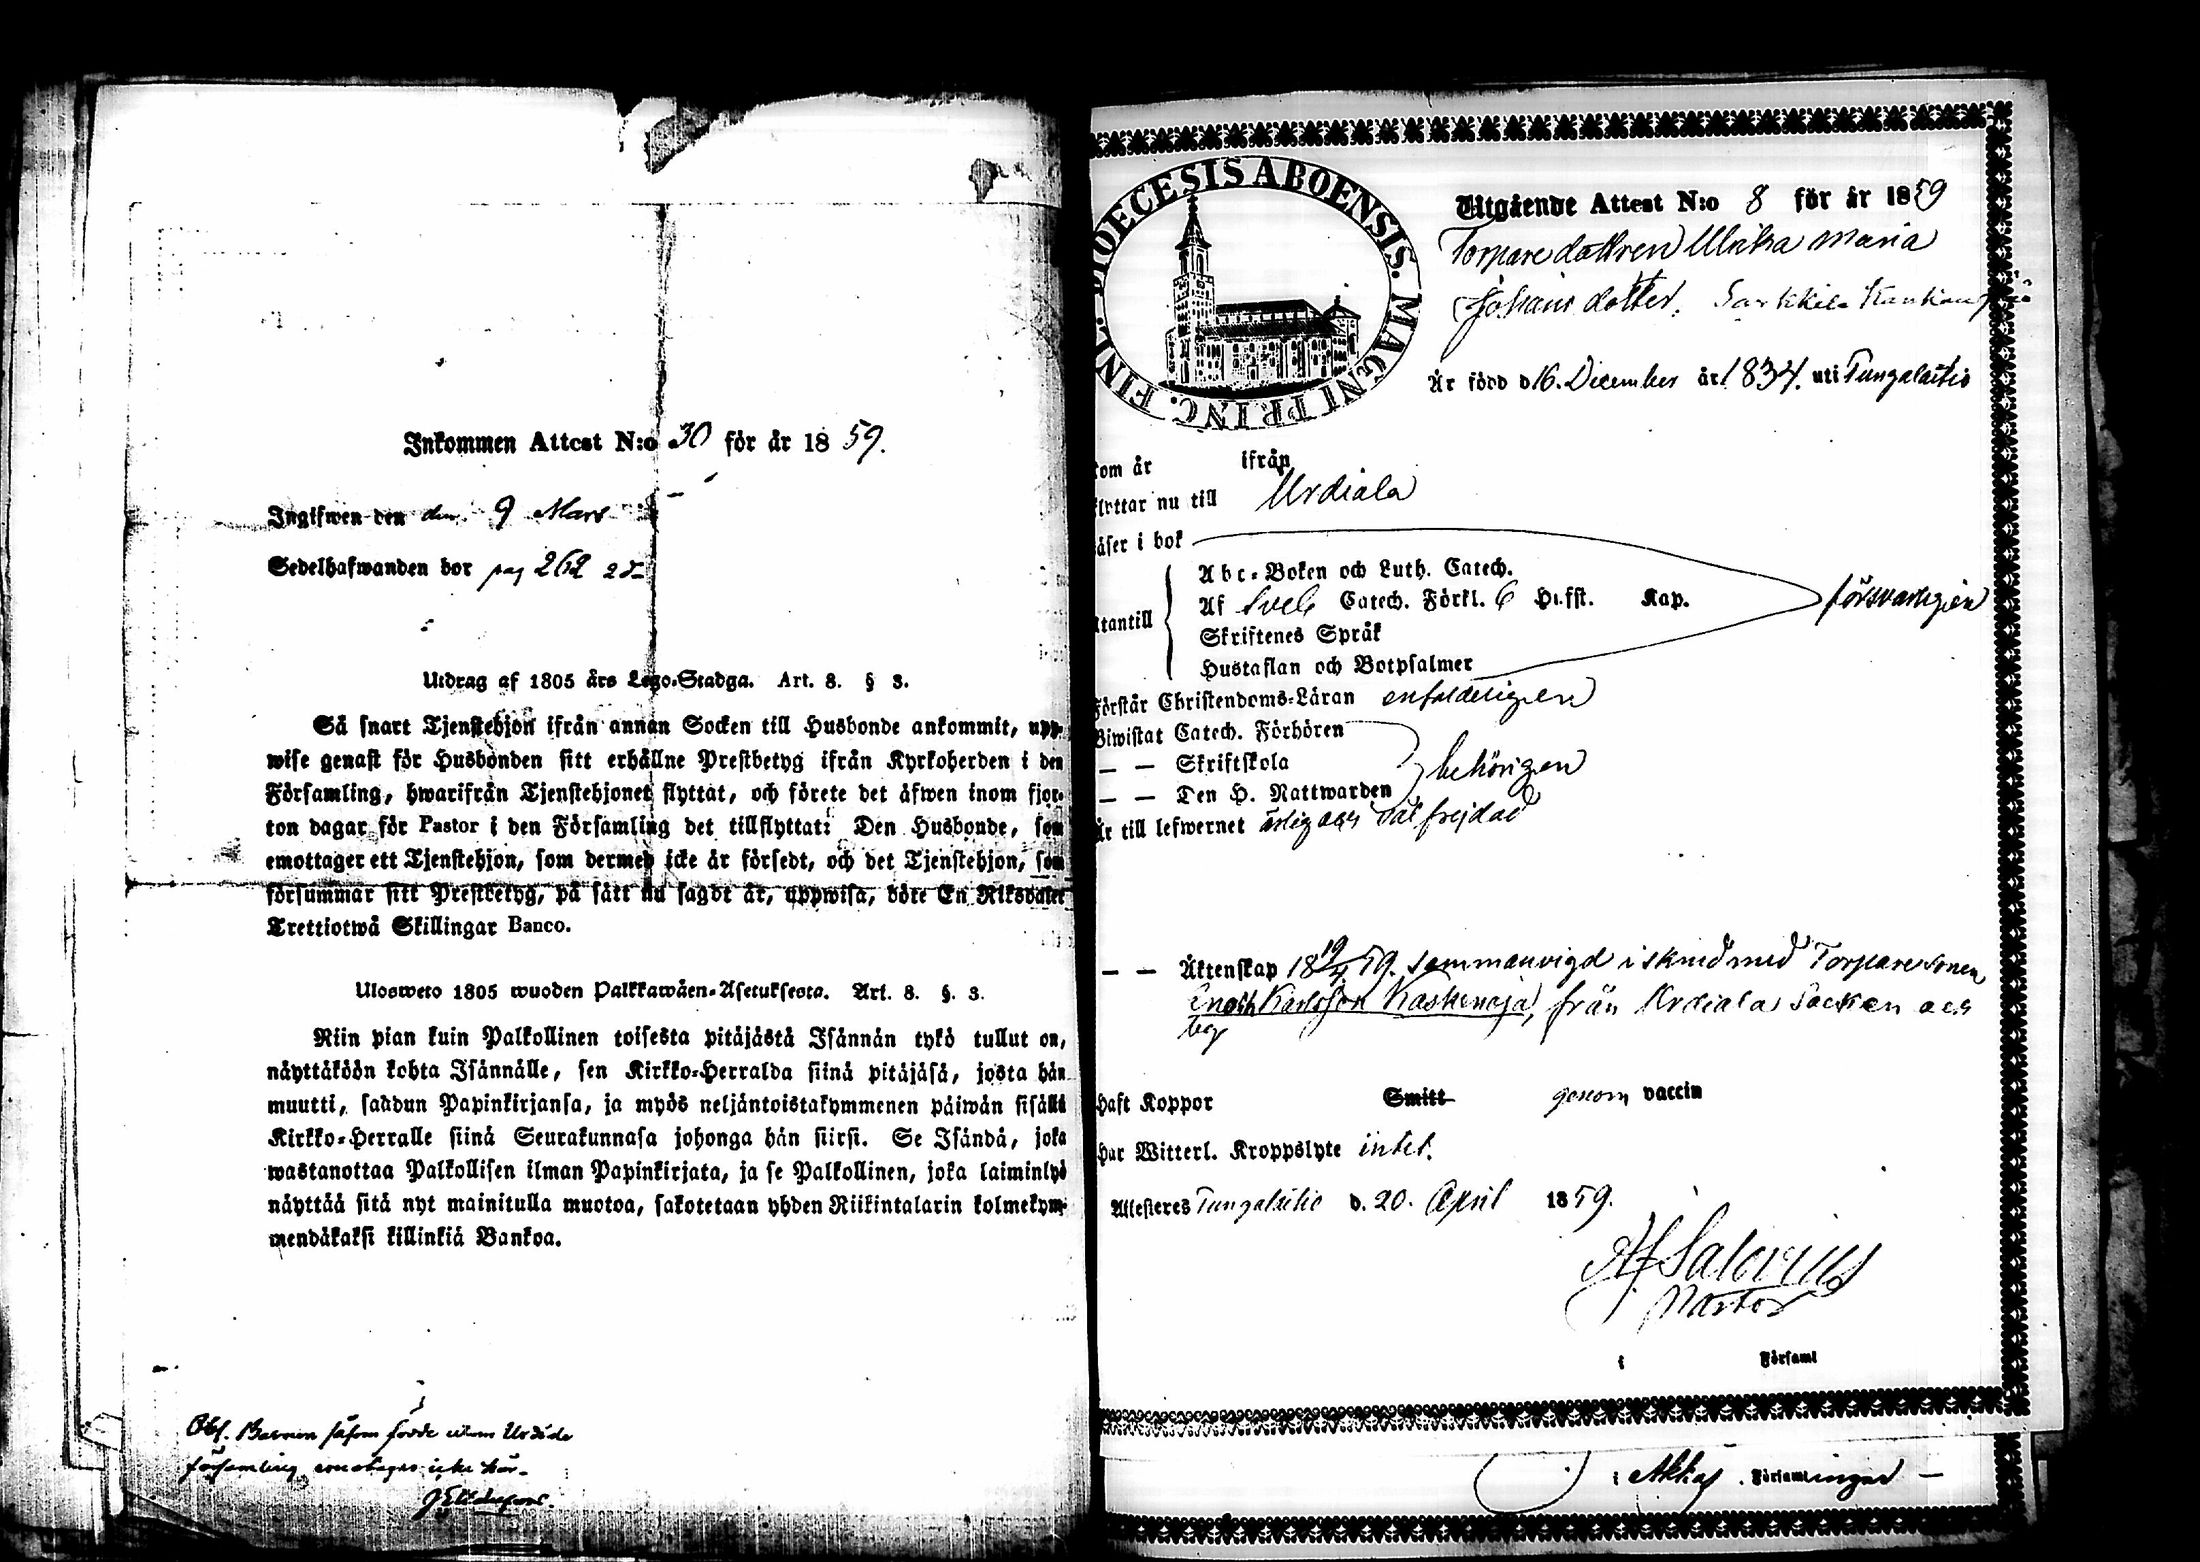 Inkommen Attest N:o 30 för år 1859.
Ingifwen den den 9 Mars
Sedelhafwanden bor pag 262
Utdrag af 1805 års Lego-Stadga. Art. 8. § 3.
Så snart Tjenstehjon ifrån annan Socken till Husbonde ankommit, upp-
wise genast för Husbonden sitt erhållne Prestbetyg ifrån Kyrkoherden i den
Församling, hwarifrån Tjenstehjonet flyttat, och förete det äfwen inom fjor-
ton dagar för Pastor i den Församling det tillflyttat: Den Husbonde, som
emottager ett Tjenstehjon, som dermed icke är försedt, och det Tjenstehjon, som
försummar sitt Prestbetyg, på sätt nu sagdt är, uppwisa, böte En Riksdaler
Trettiotwå Skillingar Banco.
Ulosweto 1805 wuoden Palkkawäen-Asetuksesta. Art. 8. §. 3.
Niin pian kuin Palkollinen toisesta pitäjästä Isännän tykö tullut on,
näyttäköön kohta Isännälle, sen Kirkko-Herralda siinä pitäjäsä, josta hän
muutti, saadun Papinkirjansa, ja myös neljäntoistakymmenen päiwän sisällä
Kirkko-Herralle siinä Seurakunnasa johonga hän siirsi. Se Isändä, joka
wastanottaa Palkollisen ilman Papinkirjata, ja se Palkollinen, joka laiminlyö
näyttää sitä nyt mainitulla muotoa, sakotetaan yhden Riikintalarin kolmekym-
mendäkaksi killinkiä Bankoa.
Obs. Barnen såsom födde utom Urdiala
församling emottages icke här.
DIOECESIS ABOENSIS. MAGNI PRINC. FINL.
Utgående Attest N:o 8 för år 1859
Torparedottren Ulrika Maria
Johansdotter, Sarkkila
Är född d 16. December år 1834. uti Tungalaitio
kom år ifrån
flyttar nu till Urdiala
läser i bok
utantill
Abc-Boken och Luth. Catech.
Af Sveb Catech. Förkl. 6 Hufst. Kap.
Skriftenes Språk
Hustaflan och Botpsalmer
försvarligen
Förstår Christendoms-Läran enfaldeligen
Biwistat Catech. Förhören
— — Skriftskola
— — Den H. Nattwarden
behörigen
Är till lefwernet ärlig och väl frejdad
— — Äktenskap 18 19/4 59. sammanvigd i skrud med Torparesonen
Enoch Karlsson Kaskenoja, från Urdiala Socken och
beg
Haft Koppor Smitt genom vaccin
Har Witterl. Kroppslyte intet.
Attesteres Tungalaitio d. 20. April 1859.
Salovius
Pastor
i Församl
i Akkas Församlingar —